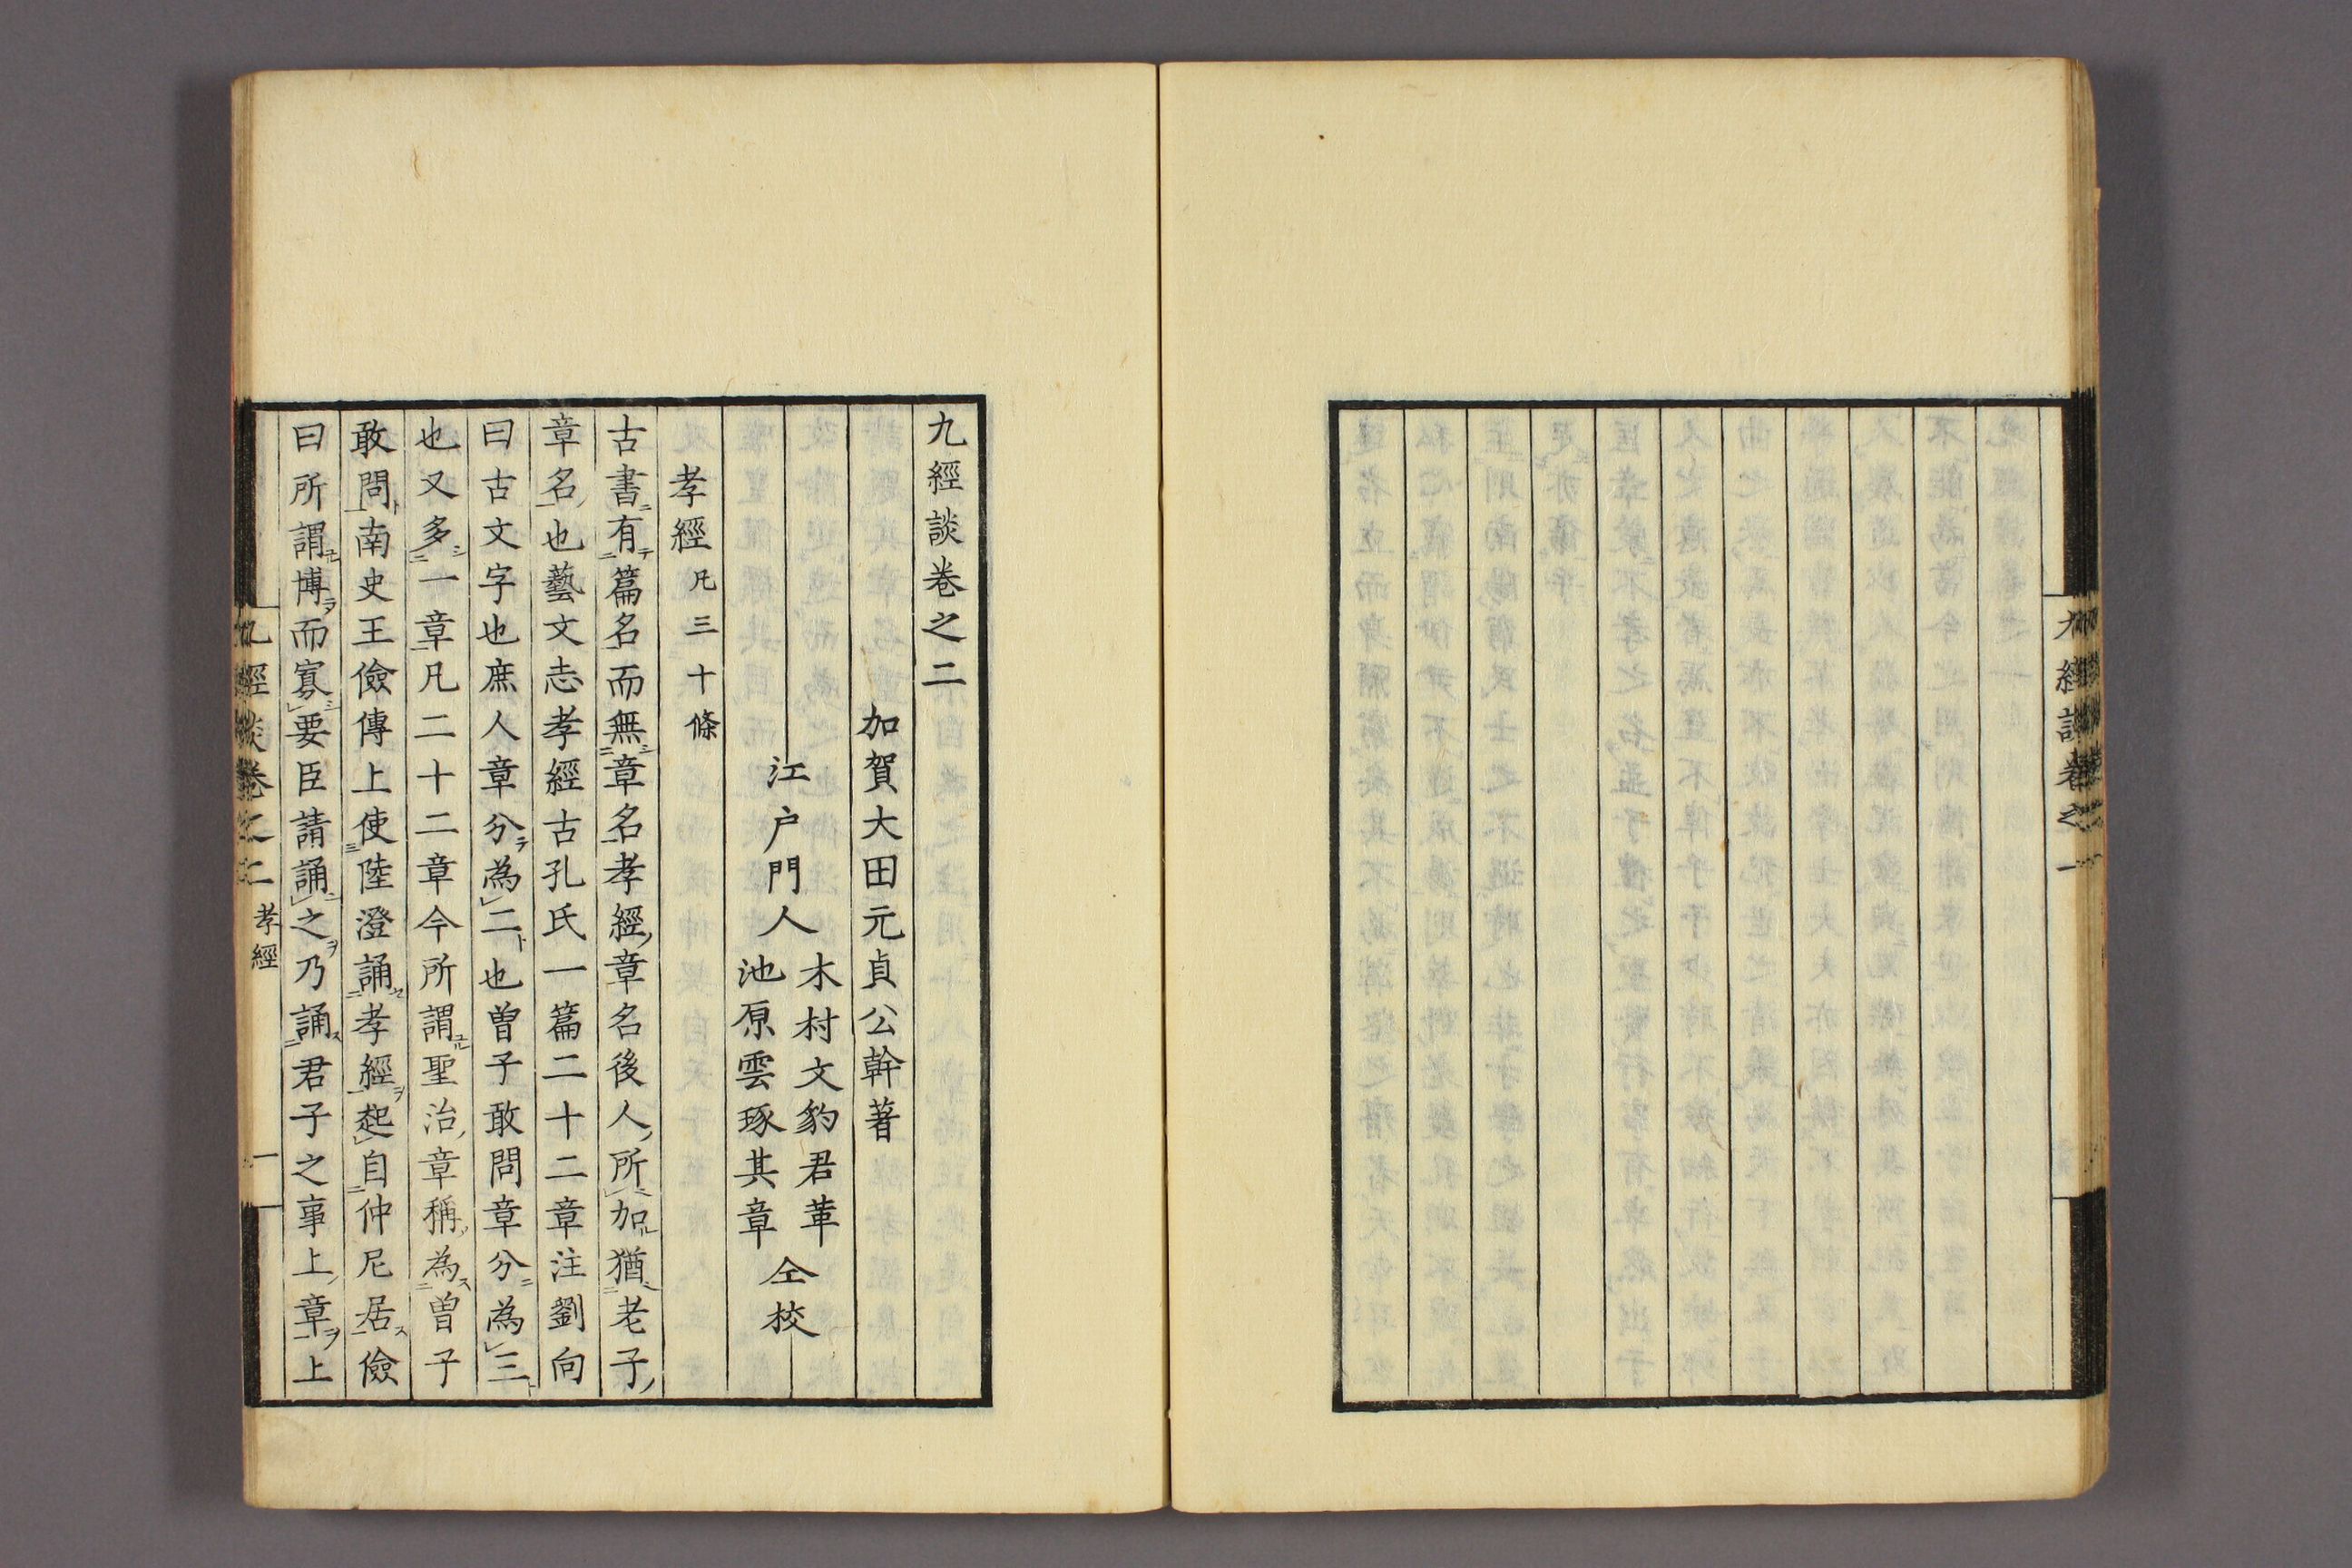 九經談卷之一
九經談卷之二
加賀大田元貞公幹著
江戸門人
木村文豹君革
池原雲琢其章
仝校
孝經凡三十條
古書有篇名而無章名孝經章名後人所加猶老子
章名也藝文志孝經古孔氏一篇二十二章注劉向
曰古文字也庶人章分為二也曽子敢問章分為三
也又多一章凡二十二章今所謂聖治章稱為曽子
敢問南史王儉傳上使陸澄誦孝經起自仲尼居儉
曰所謂博而寡要臣請誦之乃誦君子之事上章上
九經談卷之二
孝經
一